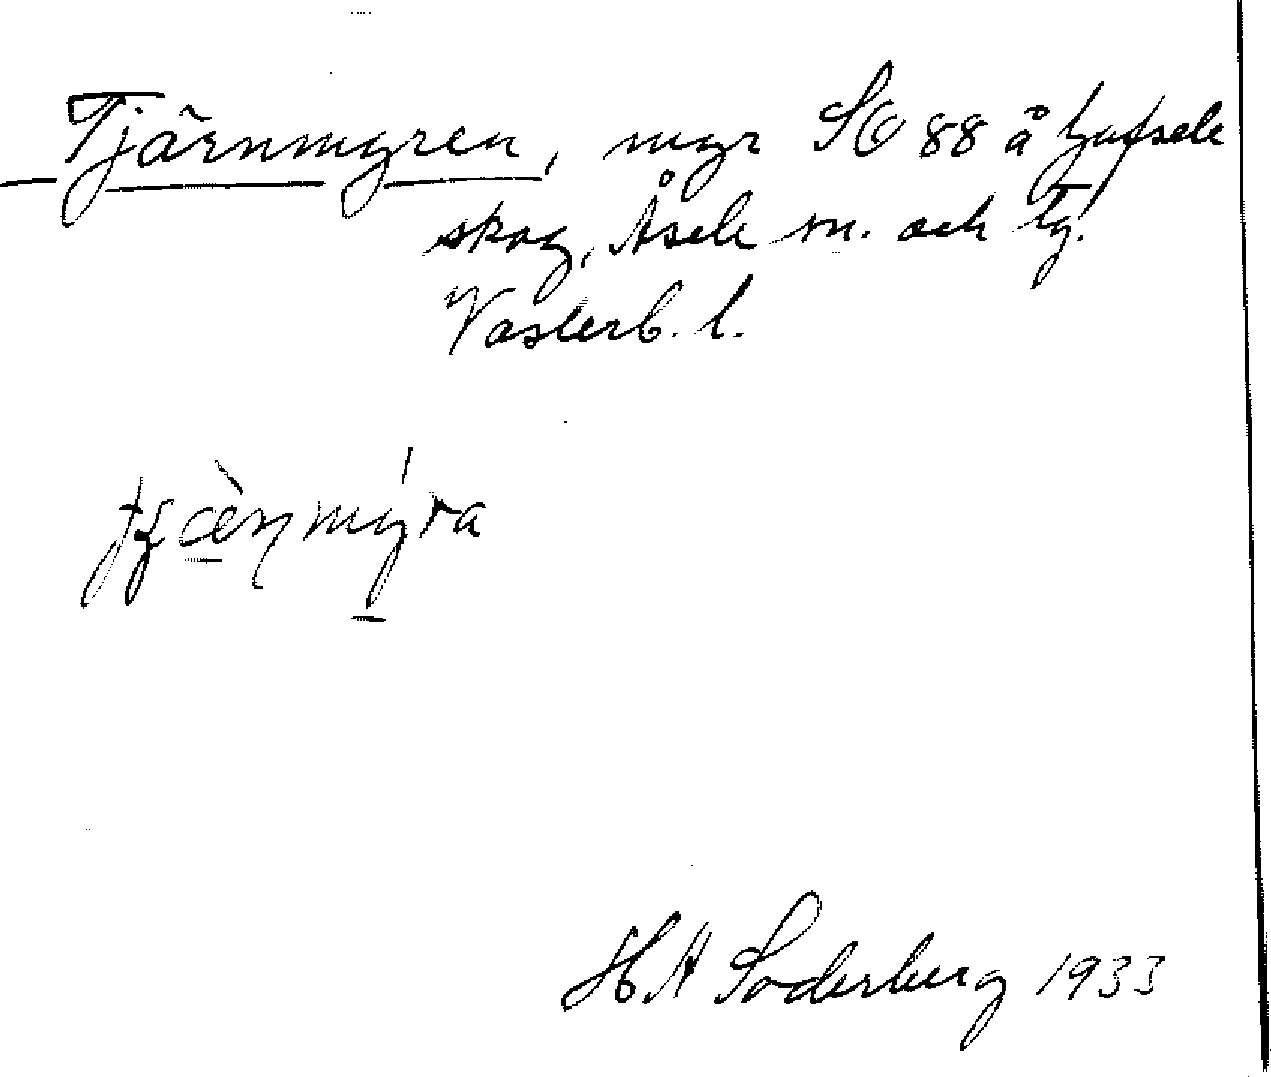 Tjärnmyren, myr SO 88 å Gafsele
skog, Åsele sn. och tg.
Västerb. l.
mýra
H A Söderberg 1933